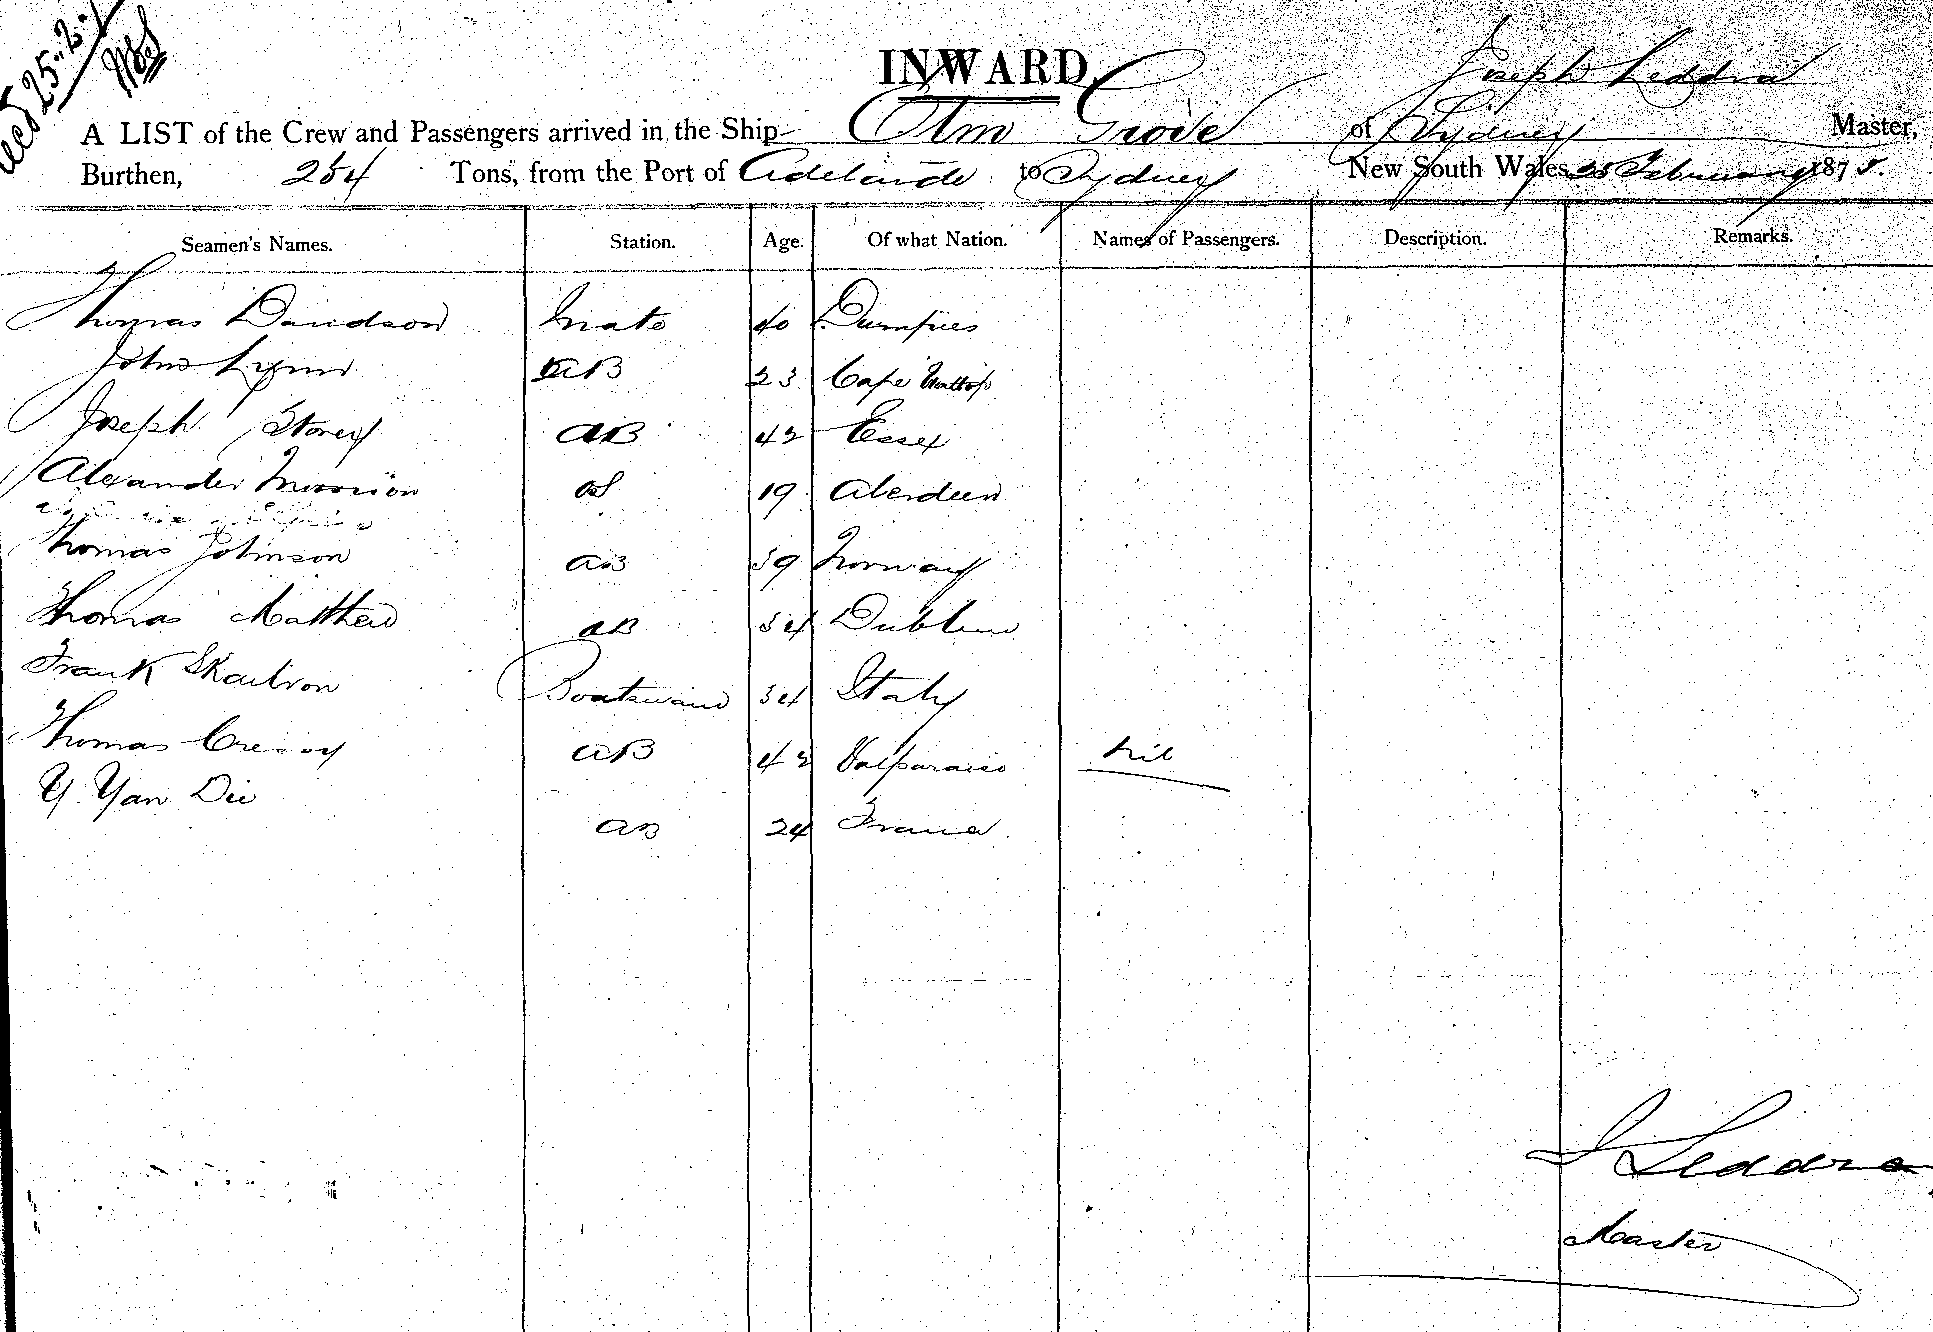 25.2.
INWARD
Joseph Leddra
A LIST of the Crew and Passengers arrived in the Ship Elm Grove of Sydney Master,
Burthen, 254 Tons, from the Port of Adelaide to Sydney New South Wales 25 February 1875.
Seamen's Names. Station. Age. Of what Nation. Names of Passengers. Description. Remarks.
Thomas Davidson Mate 40 Dumfries
John Lynn AB 23 Cape
Joseph Storey AB 42 Essex
Alexander Morrison OS 19 Aberdeen
Thomas Johnson AB 39 Norway
Thomas Matthew AB 34 Dublin
Frank Boatswain 34 Italy
Thomas AB 42 Valparaiso Nil
Y. Yan Die
AB 24 France
J Leddra
Master